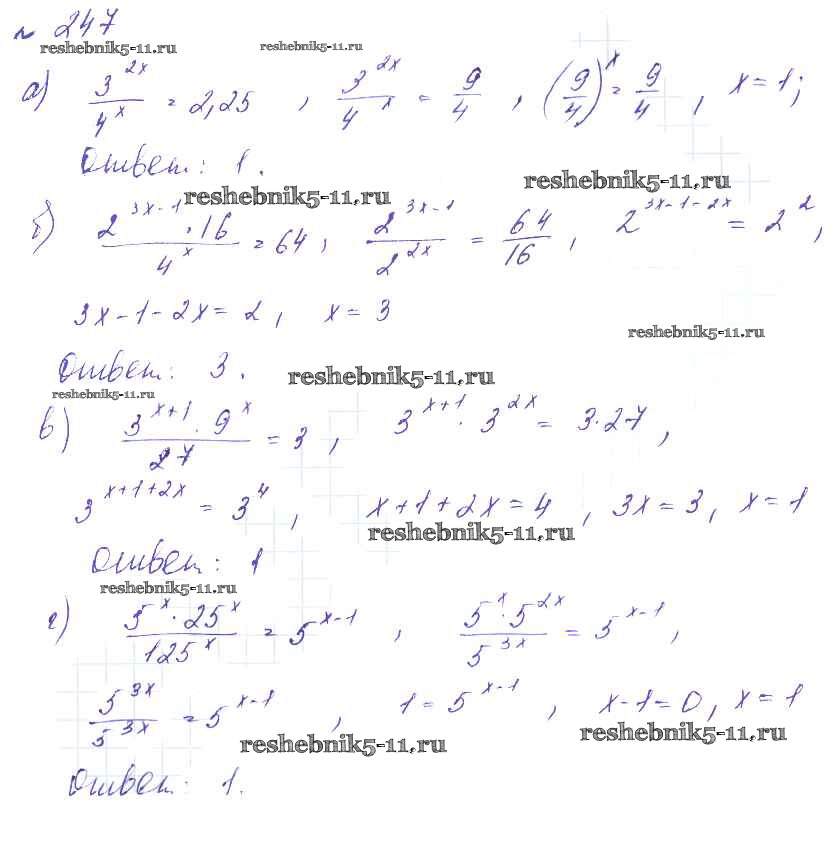 № 247
reshebnik5-11.ru reshebnik5-11.ru
а) 3^{2x}/4^x = 2,25 , 3^{2x}/4^x = 9/4 , (9/4)^x = 9/4 , x = 1;
Ответ: 1.
reshebnik5-11.ru reshebnik5-11.ru
б) 2^{3x-1}·16/4^x = 64 , 2^{3x-1}/2^{2x} = 64/16 , 2^{3x-1-2x} = 2^2 ,
3x-1-2x = 2 , x = 3
reshebnik5-11.ru
Ответ: 3.
reshebnik5-11.ru
reshebnik5-11.ru
в) 3^{x+1}·9^x/27 = 3 , 3^{x+1}·3^{2x} = 3·27 ,
3^{x+1+2x} = 3^4 , x+1+2x = 4 , 3x = 3 , x = 1
reshebnik5-11.ru
Ответ: 1
reshebnik5-11.ru
г) 5^x·25^x/125^x = 5^{x-1} , 5^x·5^{2x}/5^{3x} = 5^{x-1} ,
5^{3x}/5^{3x} = 5^{x-1} , 1 = 5^{x-1} , x-1 = 0 , x = 1
reshebnik5-11.ru reshebnik5-11.ru
Ответ: 1.